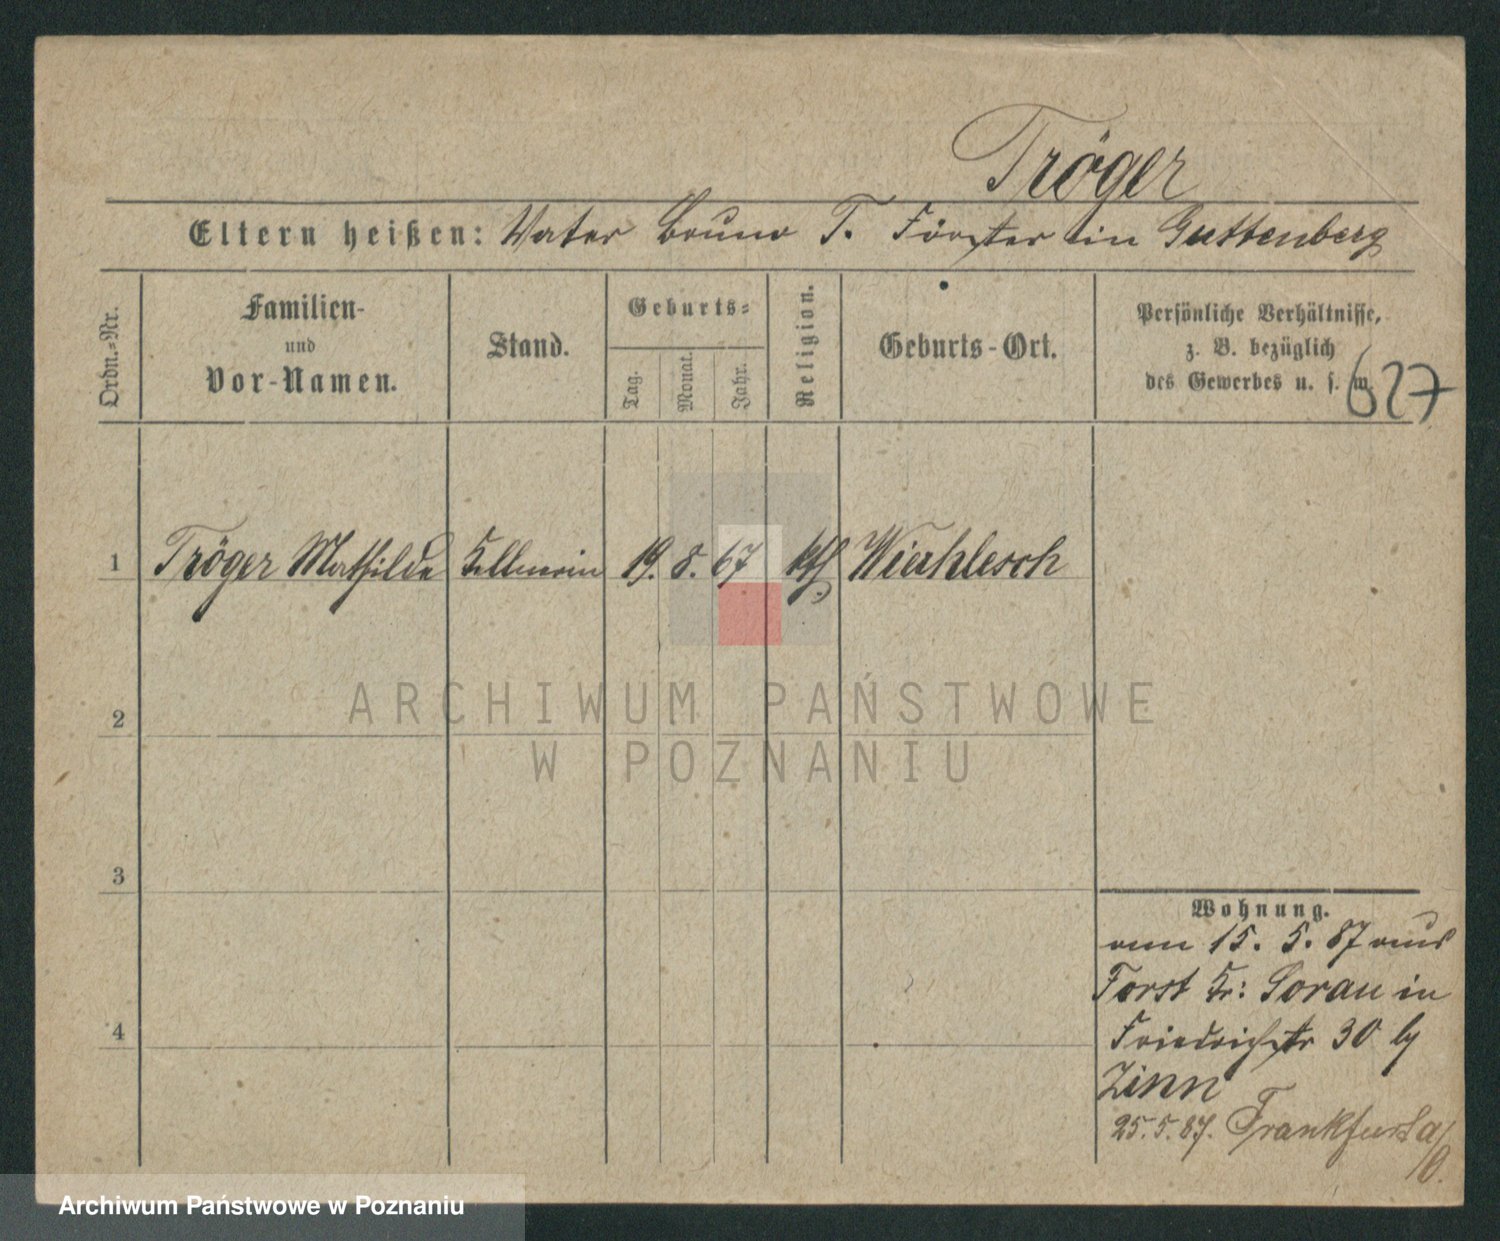 Tröger
Eltern heißen: Vater Bruno T. Förster in Guttenberg
Ordn.-Nr.
Familien-
und
Vor-Namen.
Stand.
Geburts-
Tag.
Monat.
Jahr.
Religion.
Geburts-Ort.
Persönliche Verhältnisse,
z. B. bezüglich
des Gewerbes u. s. w.
627
1 Tröger Mathilde Kellnerin 19. 8. 67 kth
2
3
4
ARCHIWUM PAŃSTWOWE
W POZNANIU
Wohnung.
15. 5. 87 aus
Forst Kr: Sorau in
Friedrichstr 30 by
Zinn
25.5.87. Frankfurt a/O.
Archiwum Państwowe w Poznaniu